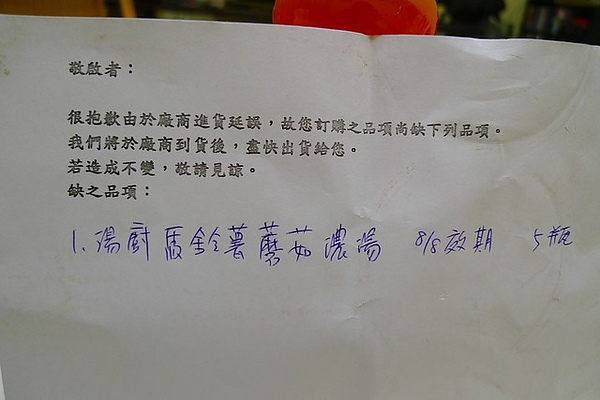 敬啟者：
很抱歉由於廠商進貨延誤，故您訂購之品項尚缺下列品項。
我們將於廠商到貨後，盡快出貨給您。
若造成不變，敬請見諒。
缺之品項：
1. 湯廚馬鈴薯蘑菇濃湯 8/8效期 5瓶